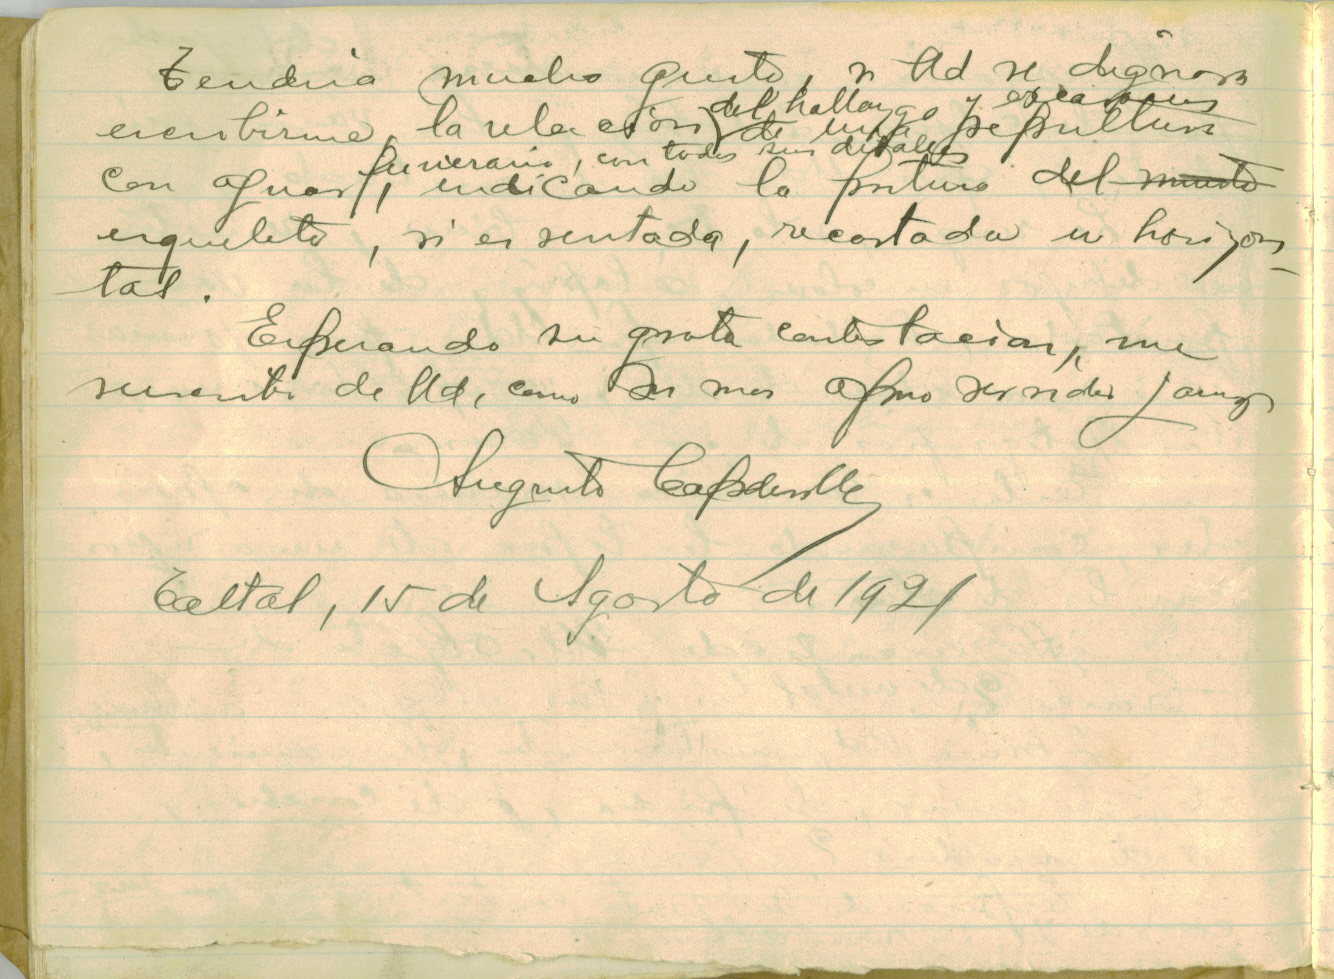 Tendria mucho gusto, si Ud se dignara
escribirme, la relacion del hallazgo y excavacion
de una sepultura
con ajuar funerario, con todos sus detalles
, indicando la postura del muerto
esqueleto, si es sentada, recostada u horizon-
tal.
Esperando su grata contestacion, me
suscribo de Ud, como su mas afmo servidor y amigo
Augusto Capdeville
Taltal, 15 de Agosto de 1921